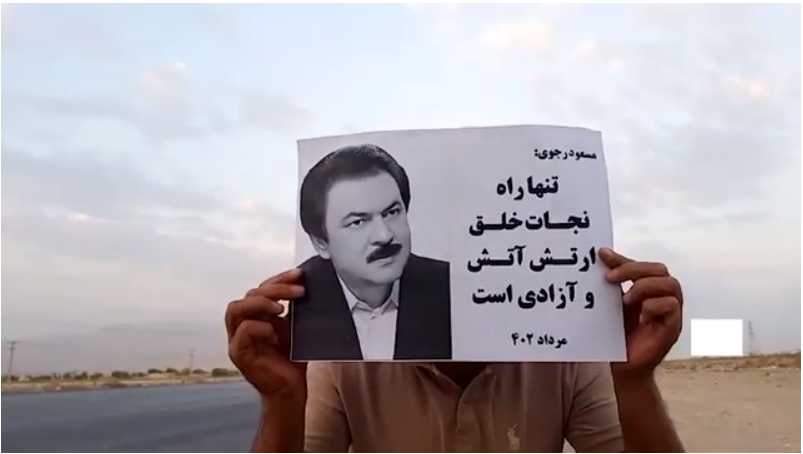 مسعود رجوی:
تنها راه
نجات خلق
ارتش آتش
و آزادی است
مرداد ۴۰۲